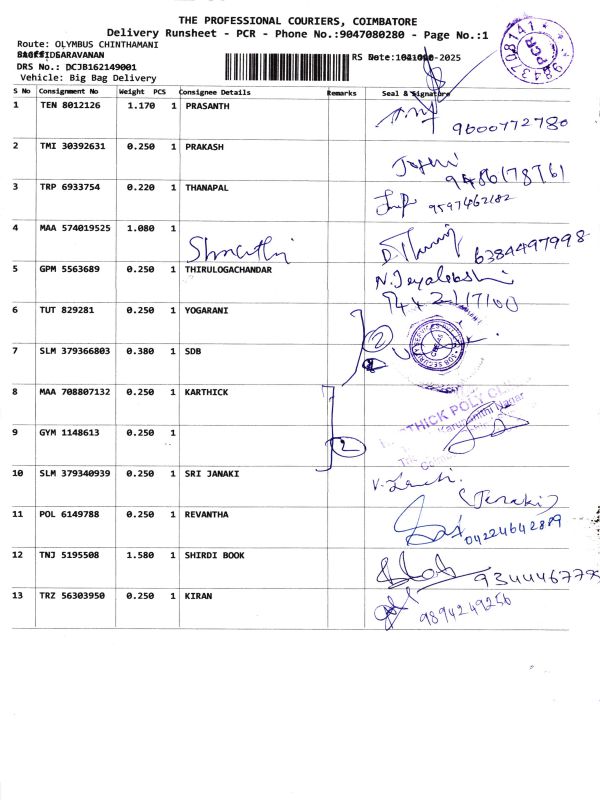 THE PROFESSIONAL COURIERS, COIMBATORE
Delivery Runsheet - PCR - Phone No.:9047080280 - Page No.:1
Route: OLYMBUS CHINTHAMANI
SARAVANAN
RS
DRS No.: DCJB162149001
Vehicle: Big Bag Delivery
9843708141
PCR
S No Consignment No Weight PCS Consignee Details Remarks Seal & Signature
1 TEN 8012126 1.170 1 PRASANTH 9600772780
2 TMI 30392631 0.250 1 PRAKASH 9486178761
3 TRP 6933754 0.220 1 THANAPAL 9597462182
4 MAA 574019525 1.080 1 6384497998
5 GPM 5563689 0.250 1 THIRULOGACHANDAR N. Jeyalakshmi
6 TUT 829281 0.250 1 YOGARANI
2
7 SLM 379366803 0.380 1 SDB
8 MAA 708807132 0.250 1 KARTHICK
9 GYM 1148613 0.250 1 2
10 SLM 379340939 0.250 1 SRI JANAKI
(Jenaki)
11 POL 6149788 0.250 1 REVANTHA 04224642889
12 TNJ 5195508 1.580 1 SHIRDI BOOK
13 TRZ 56303950 0.250 1 KIRAN 9894249256